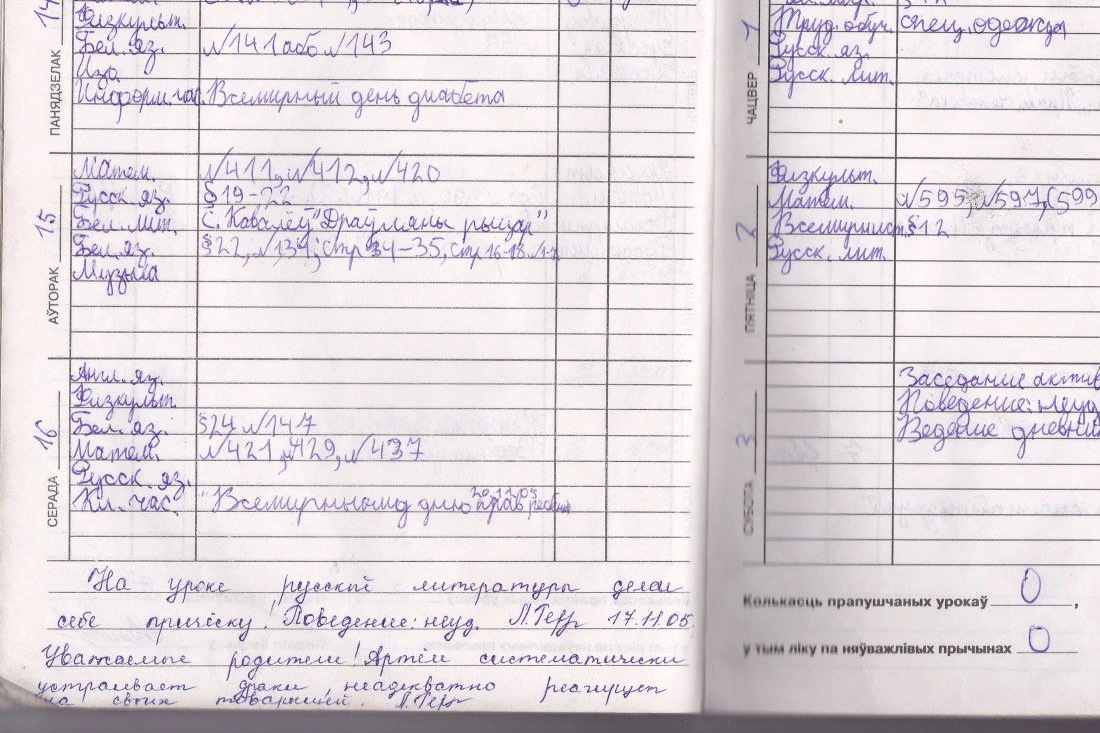 14
ПАНЯДЗЕЛАК
Физкульт.
Бел. яз. №141 або №143
Изо
Информ. час. Всемирный день диабета
15
АЎТОРАК
Матем. №411, №412, №420
Русск. яз. §19-22
Бел. лит. С. Ковалёў "Драўляны рыцар"
Бел. яз. §22, №134; Стр 34-35, Стр 16-18
Музыка
16
СЕРАДА
Англ. яз.
Физкульт.
Бел. яз. §24 №147
Матем. №421, №429, №437
Русск. яз.
Кл. час. "Всемирному дню прав ребёнка
20.11.05
На уроке русской литературы делал
себе причёску! Поведение: неуд. 17.11.05.
Уважаемые родители! Артём систематически
устраивает драки, неадекватно реагирует
на своих товарищей.
1
ЧАЦВЕР
Труд. обуч. спец. одежды
Русск. яз.
Русск. лит.
2
ПЯТНІЦА
Физкульт.
Матем. №595, №597, (599
Всемирн. ист. §12
Русск. лит.
3
СУБОТА
Заседание актив
Поведение: неуд
Ведение дневни
Колькасць прапушчаных урокаў 0,
у тым ліку па няўважлівых прычынах 0